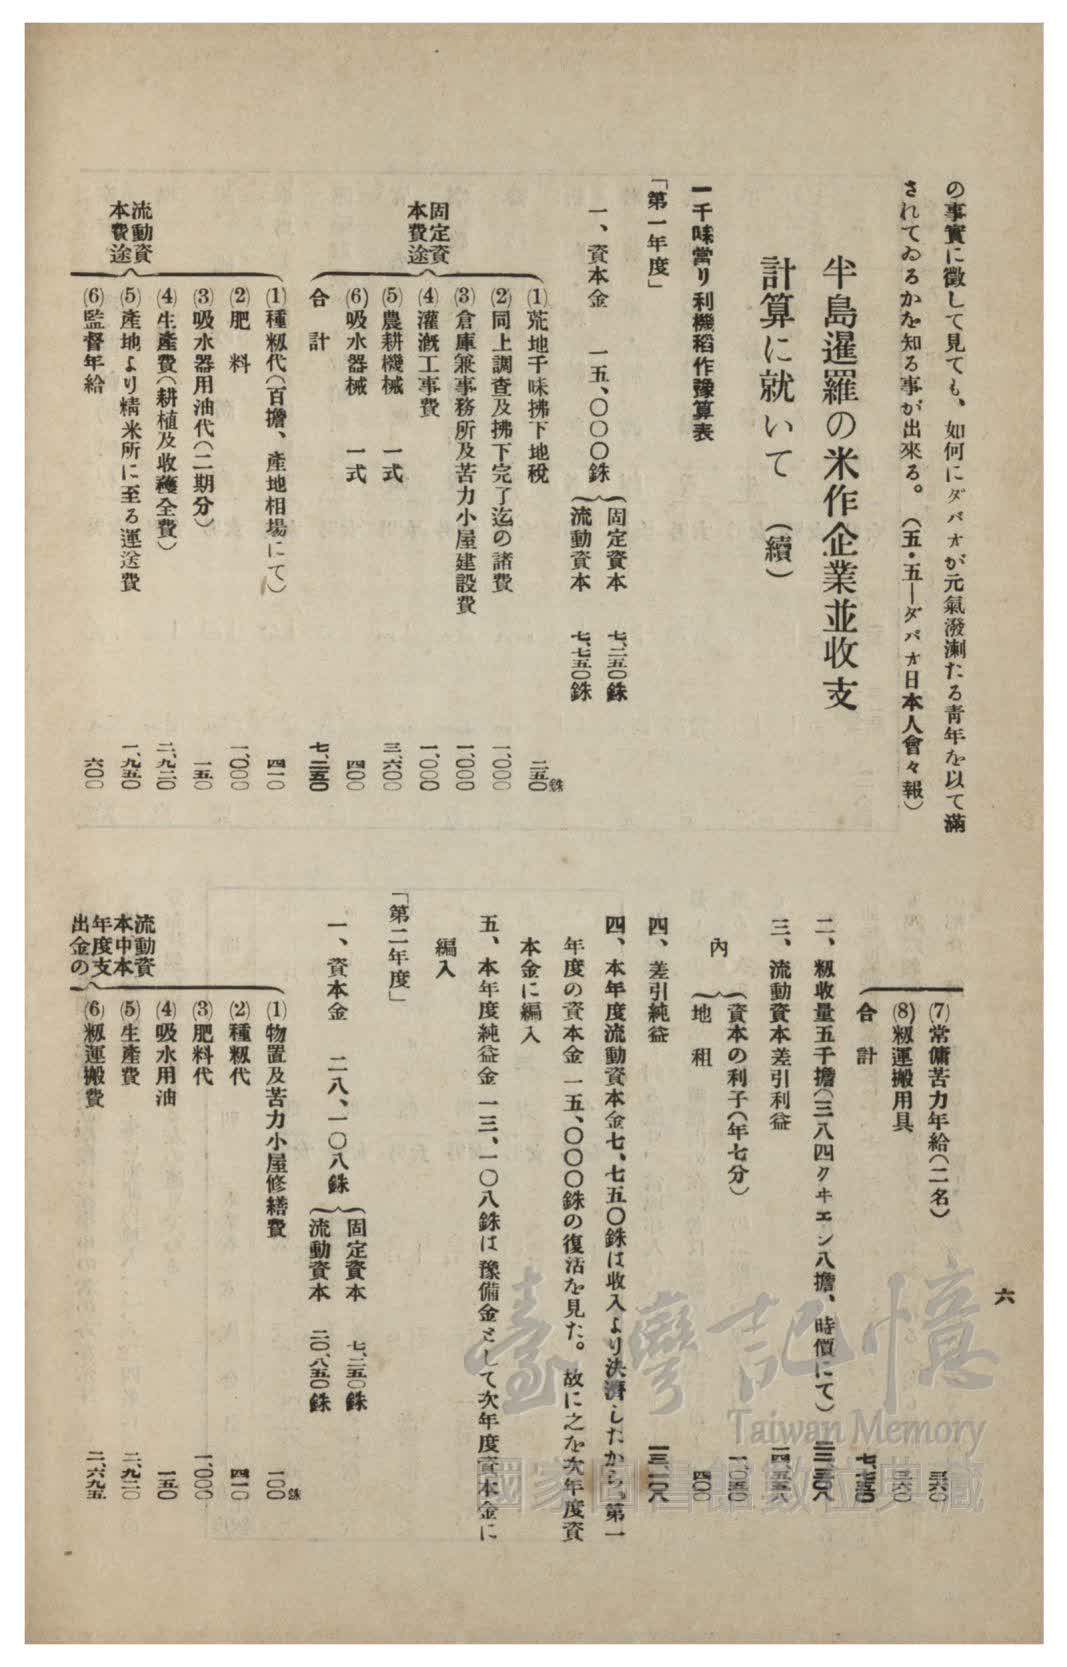 の事實に徴して見ても、如何にダバオが元氣潑溂たる青年を以て滿
されてゐるかを知る事が出來る。（五・五―ダバオ日本人會々報）
半島暹羅の米作企業並收支
計算に就いて（續）
一千味當り利機稻作豫算表
「第一年度」
一、資本金　一五、〇〇〇銖
固定資本　七、二五〇銖
流動資本　七、七五〇銖
固定資本費途
(1)荒地千味拂下地稅　二五〇銖
(2)同上調査及拂下完了迄の諸費　一、〇〇〇
(3)倉庫兼事務所及苦力小屋建設費　一、〇〇〇
(4)灌漑工事費　一、〇〇〇
(5)農耕機械　一式　三、六〇〇
(6)吸水器械　一式　四〇〇
合計　七、二五〇
流動資本費途
(1)種籾代（百擔、產地相場にて）　四一〇
(2)肥料　一、〇〇〇
(3)吸水器用油代（二期分）　一五〇
(4)生產費（耕植及收穫全費）　二、九二〇
(5)產地より精米所に至る運送費　一、九五〇
(6)監督年給　六〇〇
六
(7)常傭苦力年給（二名）　三六〇
(8)籾運搬用具　三六〇
合計　七、七五〇
二、籾收量五千擔（三八四クヰエン八擔、時價にて）　二二、三〇八
三、流動資本差引利益　一四、五五八
內
資本の利子（年七分）　一、〇五〇
地租　四〇〇
四、差引純益　一三、一〇八
四、本年度流動資本金七、七五〇銖は收入より決濟したから。第一
年度の資本金一五、〇〇〇銖の復活を見た。故に之を次年度資
本金に編入
五、本年度純益金一三、一〇八銖は豫備金として次年度資本金に
編入
「第二年度」
一、資本金　二八、一〇八銖
固定資本　七、二五〇銖
流動資本　二〇、八五〇銖
流動資本中本年度支出金の
(1)物置及苦力小屋修繕費　一〇〇銖
(2)種籾代　四一〇
(3)肥料代　一、〇〇〇
(4)吸水用油　一五〇
(5)生產費　二、九二〇
(6)籾運搬費　二、六九五
臺灣記憶
Taiwan Memory
國家圖書館數位典藏